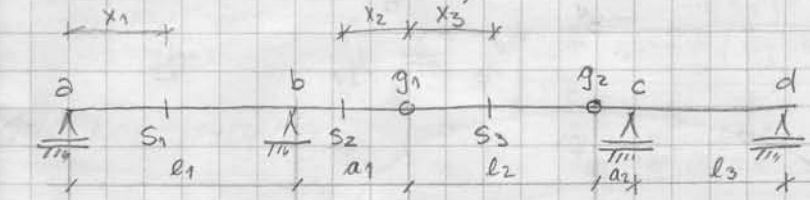 x1 x2 x3
a b g1 g2 c d
S1 S2 S3
l1 a1 l2 a2 l3